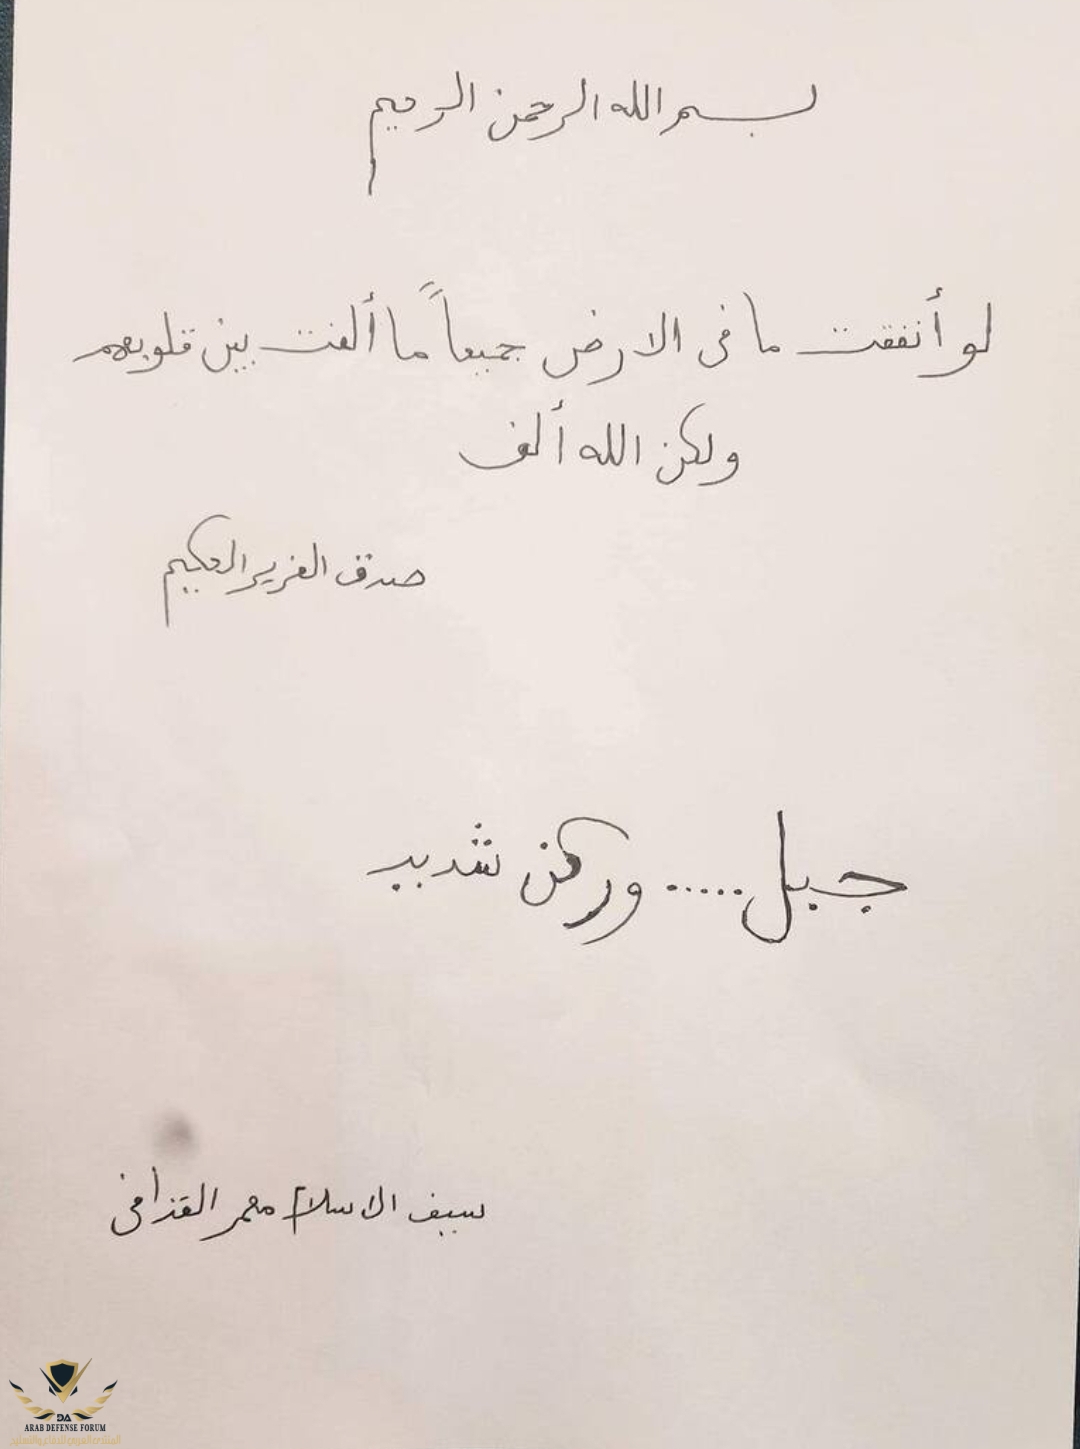 بسم الله الرحمن الرحيم
لو أنفقت ما في الارض جميعاً ما ألفت بين قلوبهم
ولكن الله ألف
صدق العزيز الحكيم
جبل ..... وركن شديد
سيف الاسلام معمر القذافي
DA
ARAB DEFENSE FORUM